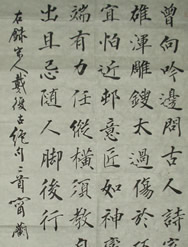 曾向吟邊問古人詩家
雄渾雕鎪太過傷於
宜怕近邨意匠如神變
端有力任縱橫須教自
出且忌隨人脚後行
右錄宋人戴復古絕句二首